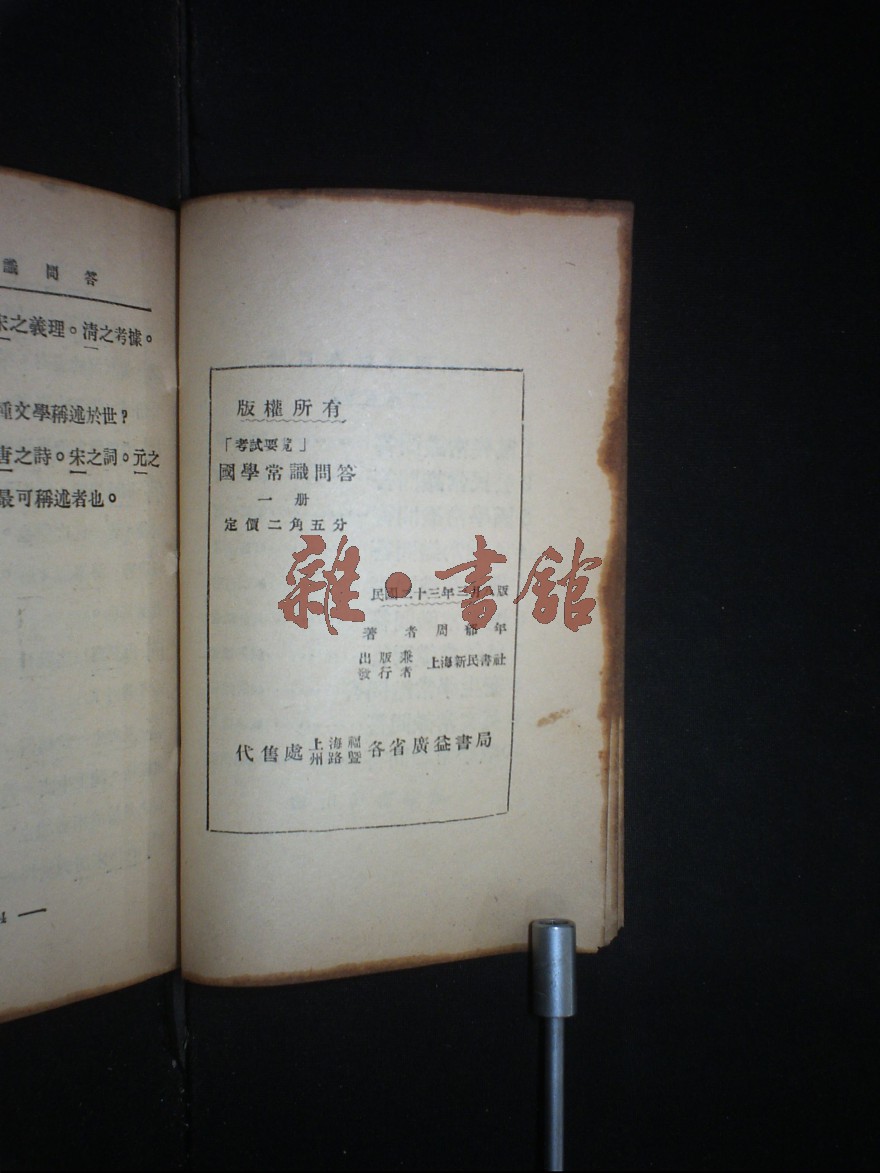 識問答
宋之義理。清之考據。
種文學稱述於世？
唐之詩。宋之詞。元之
最可稱述者也。
版權所有
「考試要覧」
國學常識問答
一册
定價二角五分
民國二十三年三月 版
著者周 年
出版兼
發行者
上海新民書社
代售處
上海福
州路暨
各省廣益書局
雜·書館